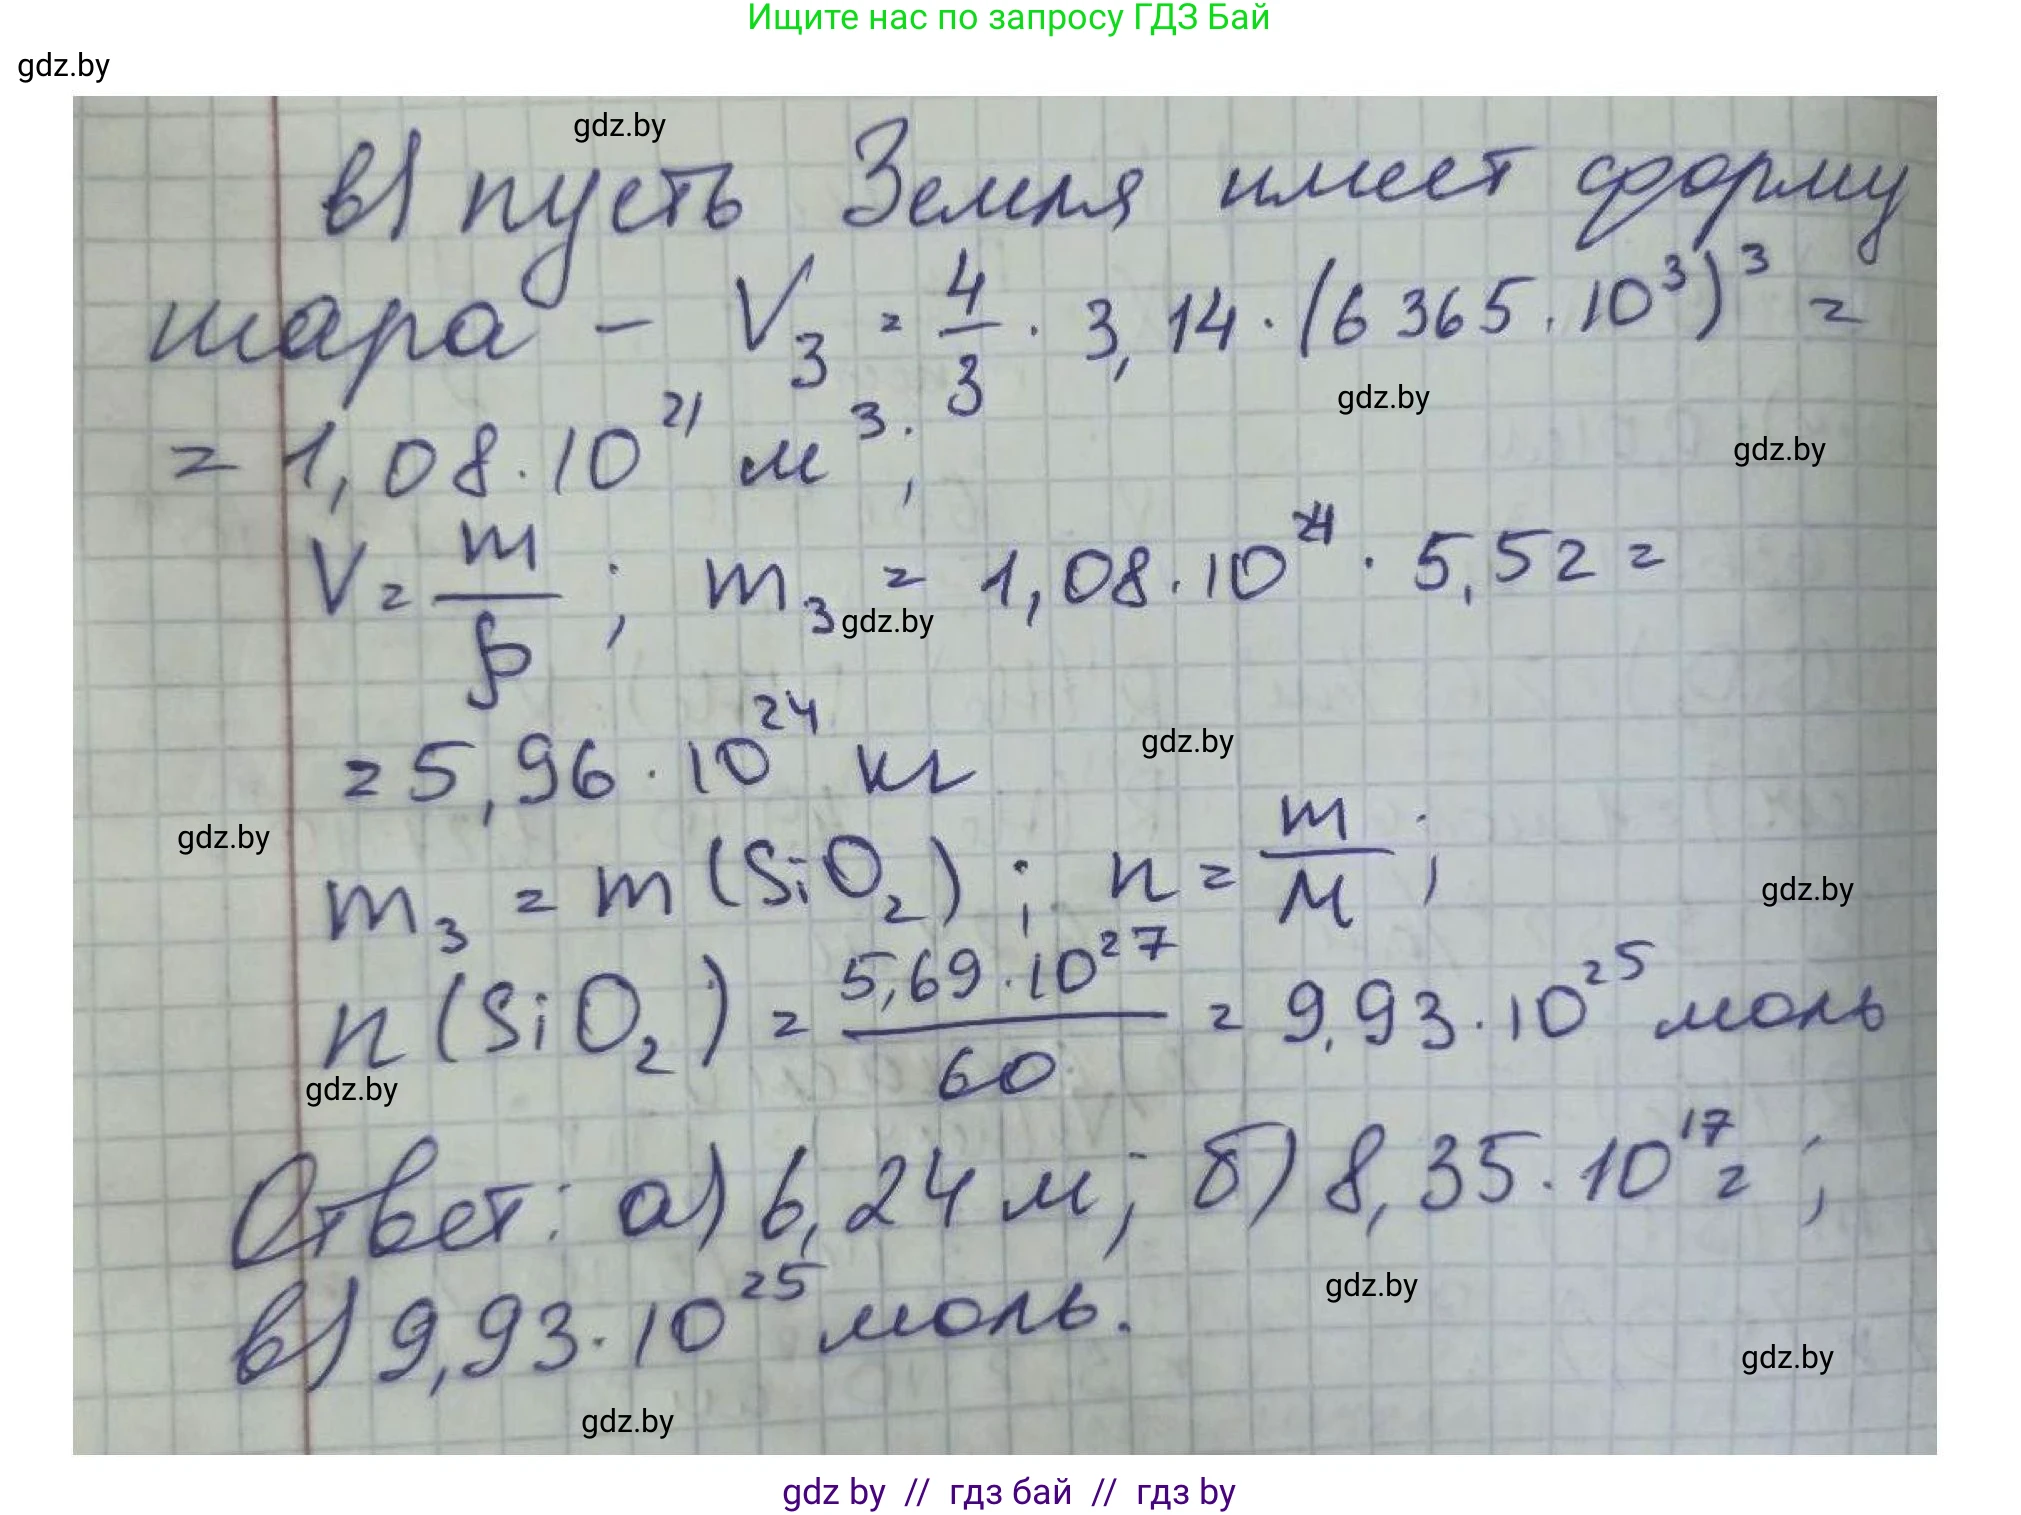 Ищите нас по запросу ГДЗ Бай
gdz.by
gdz.by
в) пусть Земля имеет форму
шара – V₃ = 4/3 · 3,14 · (6365 · 10³)³ =
gdz.by
= 1,08 · 10²¹ м³;
gdz.by
V = m/ρ ; m₃ = 1,08 · 10²¹ · 5,52 =
gdz.by
= 5,96 · 10²⁴ кг
gdz.by
gdz.by
m₃ = m (SiO₂) ; n = m/M ;
gdz.by
n (SiO₂) = 5,69 · 10²⁷/60 = 9,93 · 10²⁵ моль
gdz.by
Ответ: а) 6,24 м; б) 8,35 · 10¹⁷ г ;
gdz.by
в) 9,93 · 10²⁵ моль.
gdz.by
gdz.by
gdz by // гдз бай // гдз by